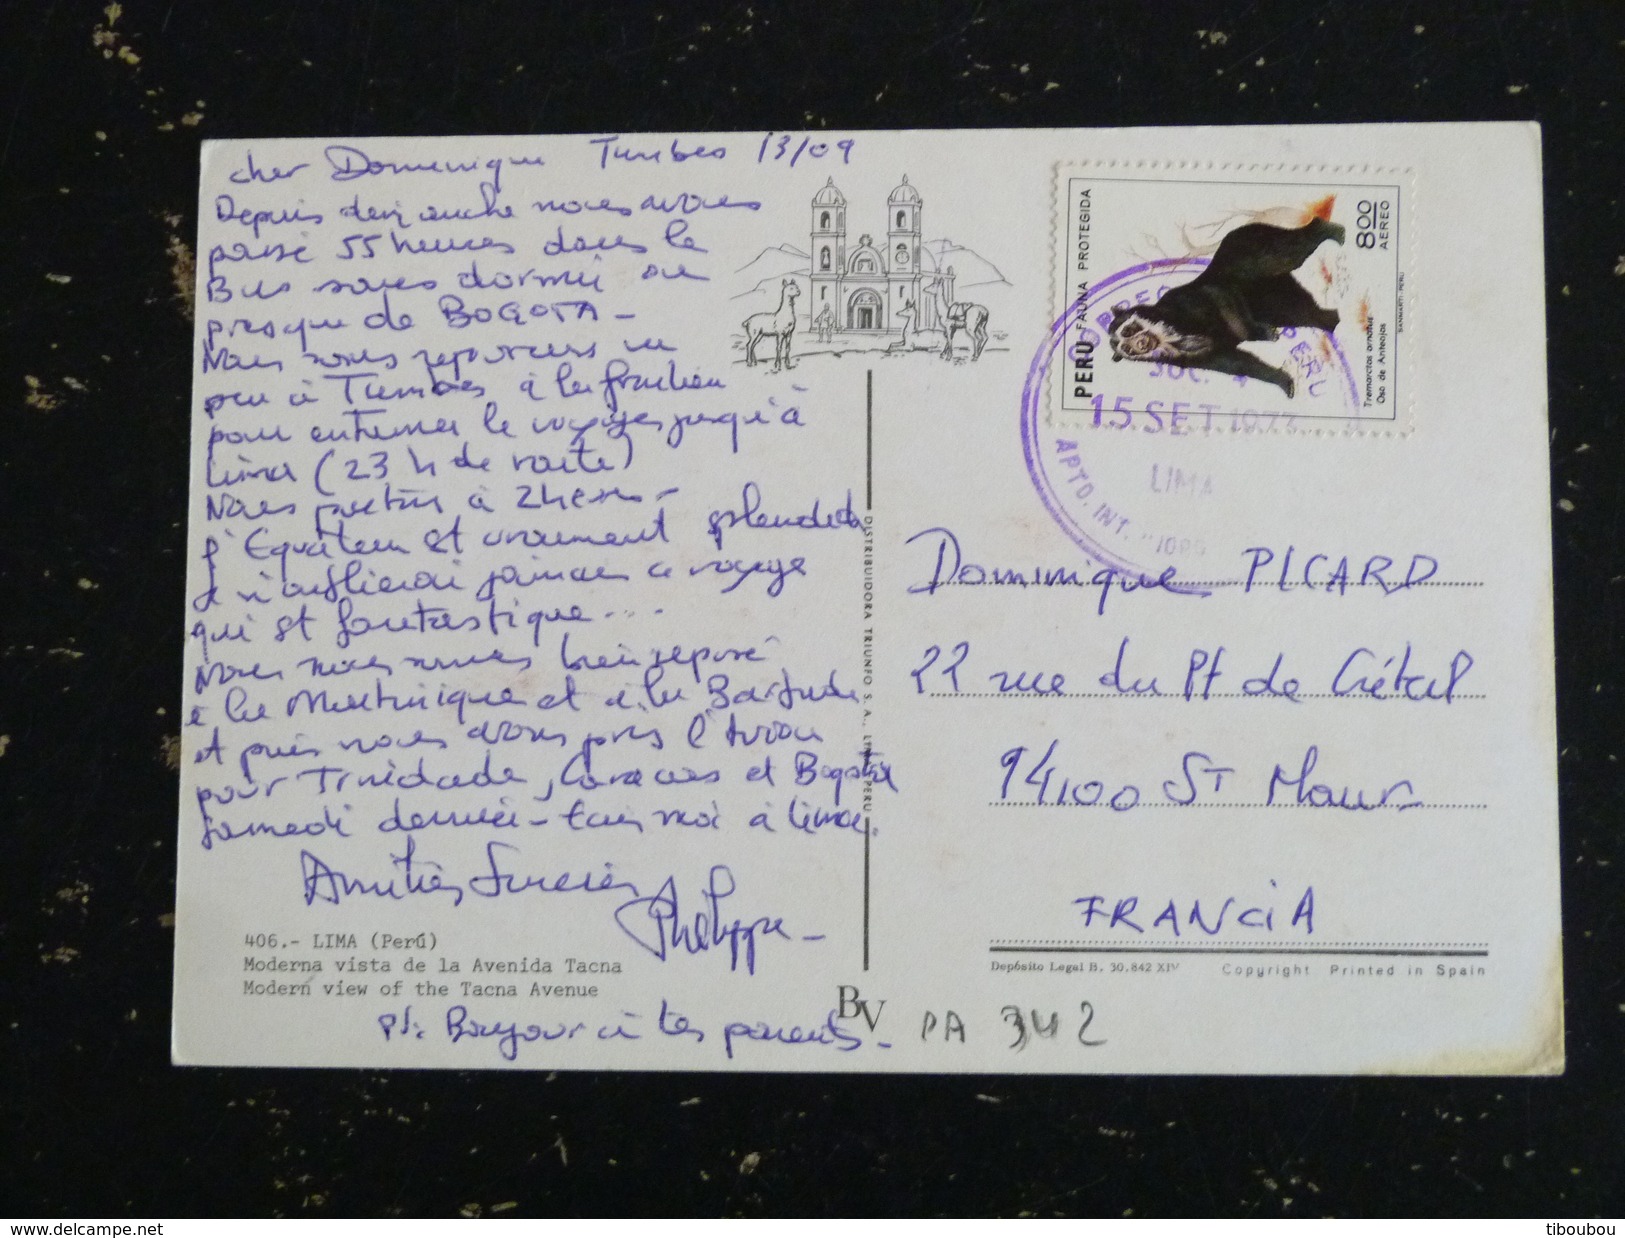 cher Dominique Tumbes 13/09
Depuis dimanche nous avons
passé 55 heures dans le
Bus sans dormir ou
presque de BOGOTA -
Nous nous reposons un
peu à Tumbes à la frontière
pour entamer le voyage jusqu'à
Lima (23 h de route)
Nous partons à 2 heures -
l'Equateur est vraiment splendide
je n'oublierai jamais ce voyage
qui est fantastique...
Nous nous sommes bien reposé
à la Martinique et à la Barbade
et puis nous avons pris l'avion
pour Trinidade, Caracas et Bogota
samedi dernier - à Lima.
Amitiés Sincères
Philippe -
406.- LIMA (Perú)
Moderna vista de la Avenida Tacna
Modern view of the Tacna Avenue
PS: Bonjour à tes parents -
DISTRIBUIDORA TRIUNFO S. A., LIMA PERU
BV
PERU FAUNA PROTEGIDA
8.00
AEREO
Tremarctos ornatus
Oso de Anteojos
SANMARTI - PERU
15 SET 1977
LIMA
APTO. INT.
Dominique PICARD
22 rue du Pt de Créteil
94100 ST Maur
FRANCIA
Depósito Legal B. 30.842 XIV Copyright Printed in Spain
PA 342
tiboubou
delcampe.net